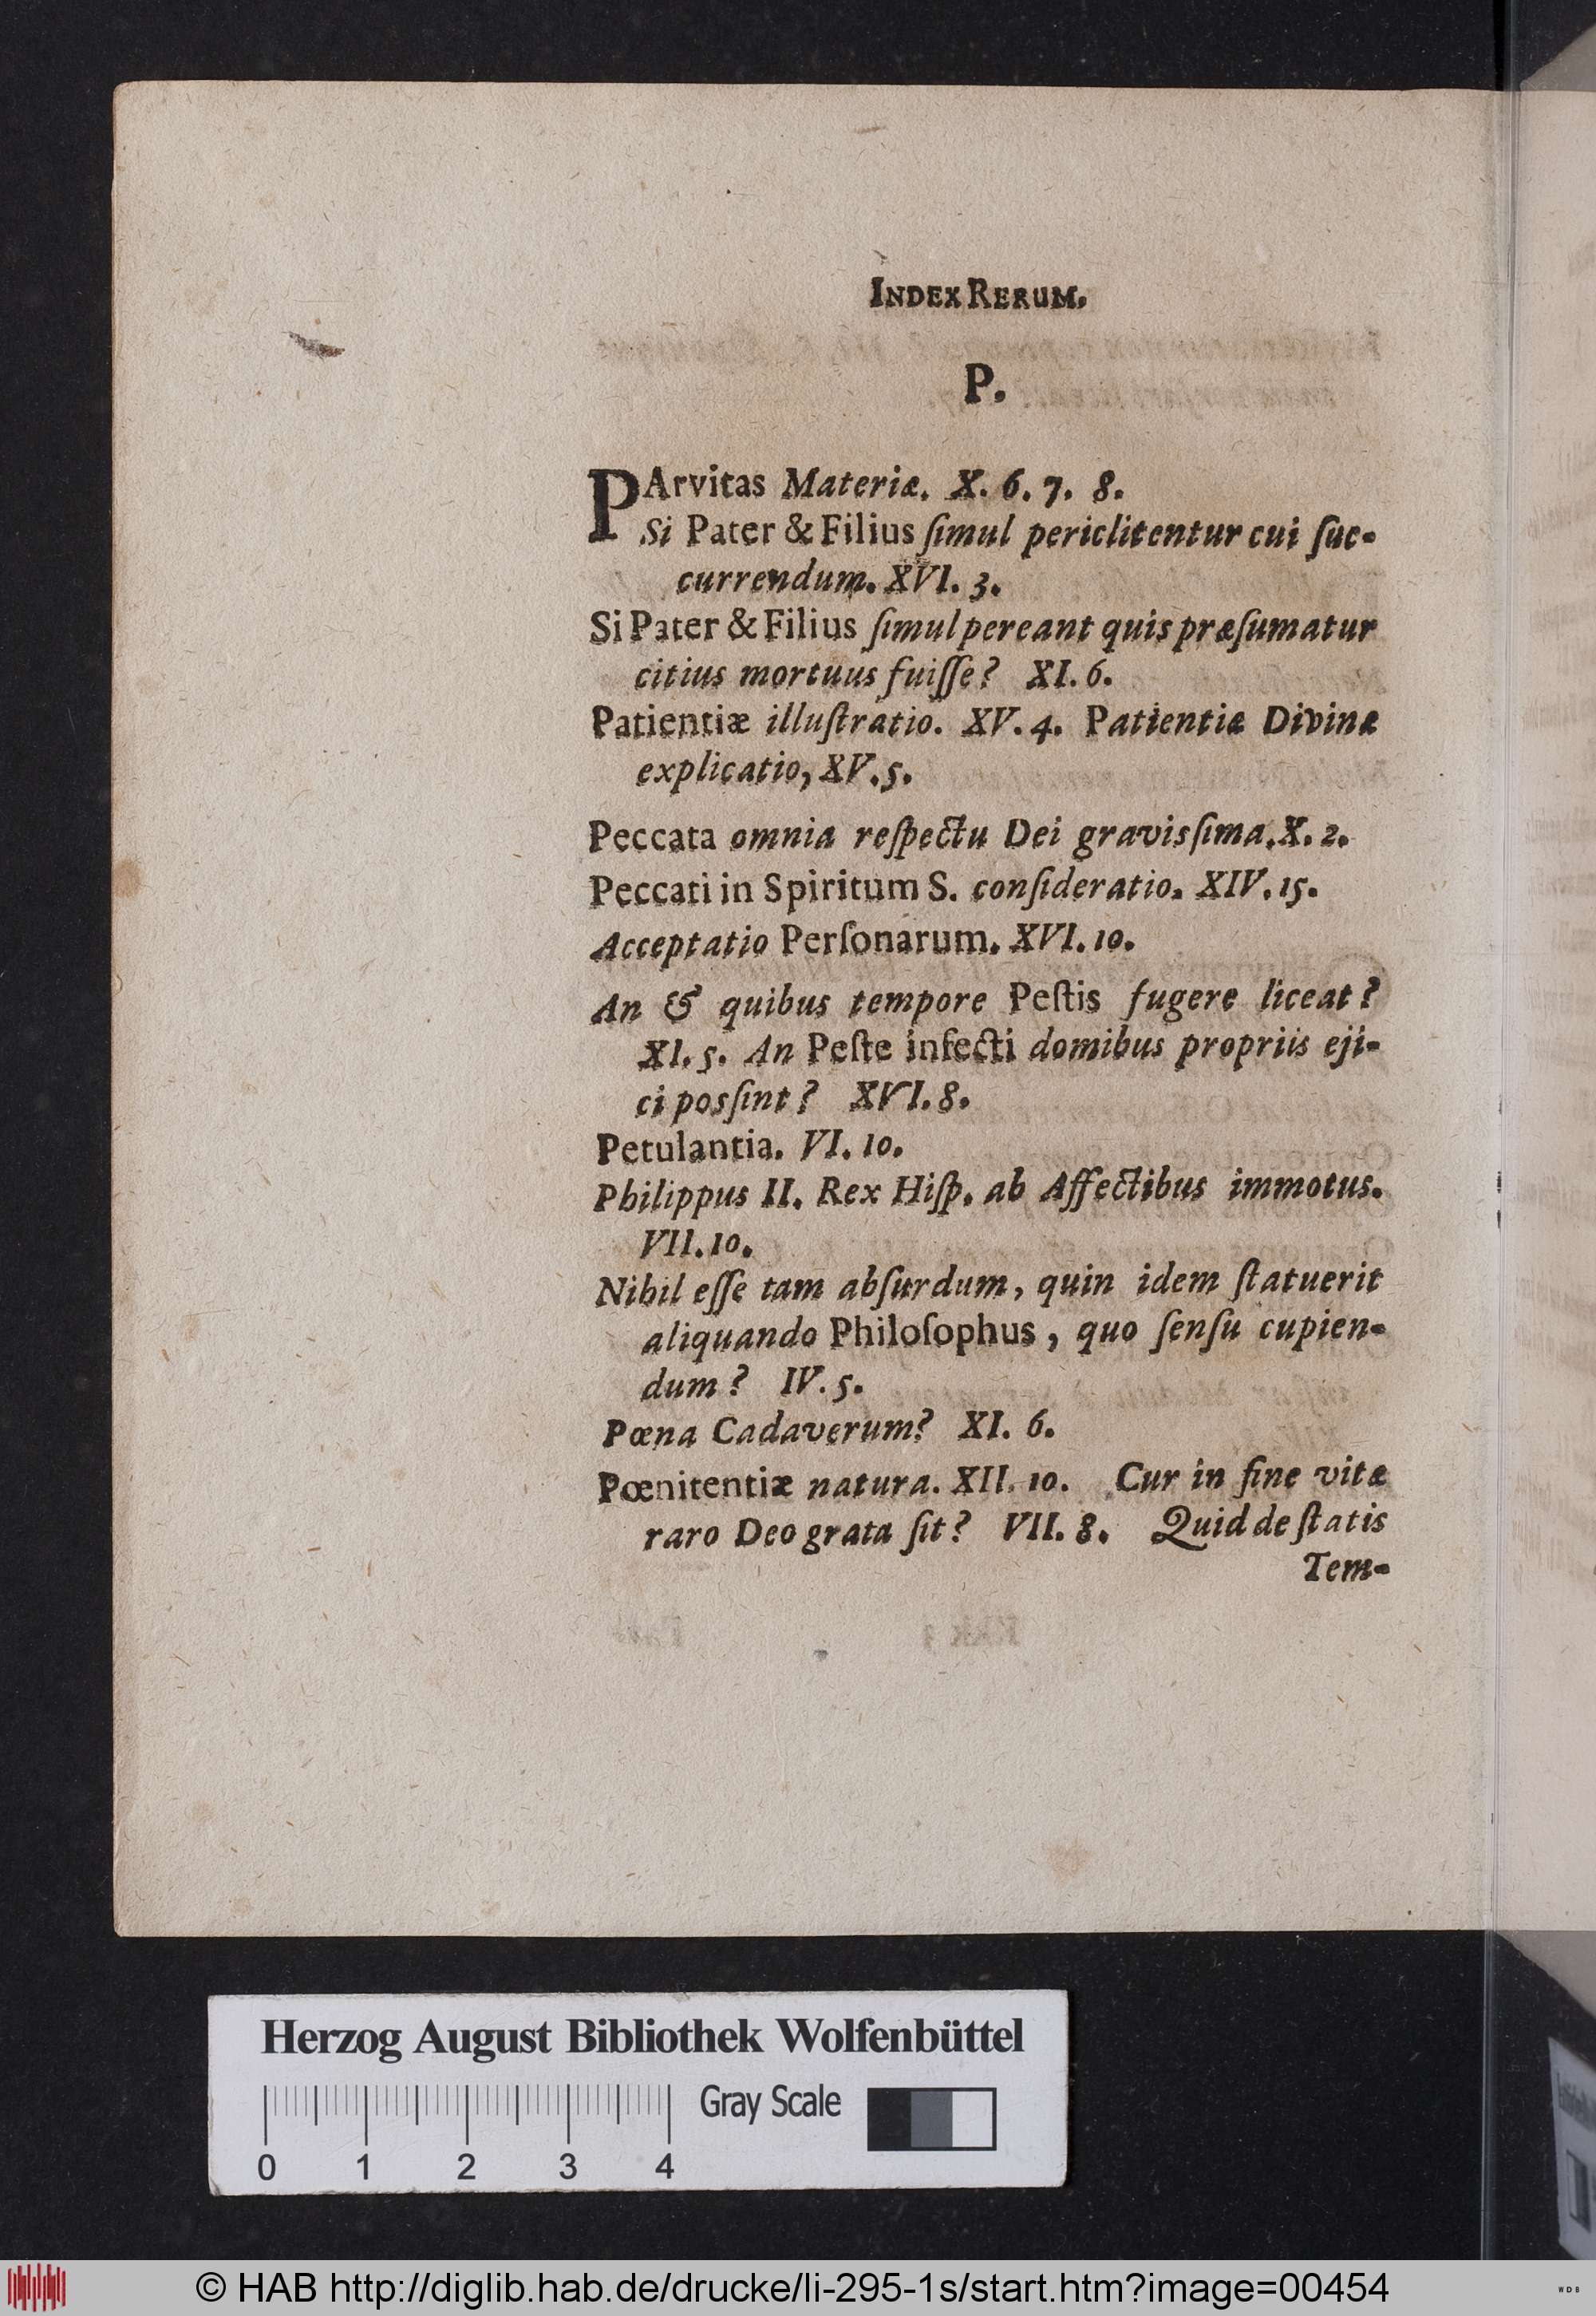 INDEX RERUM.
P.
PArvitas Materiæ. X. 6. 7. 8.
Si Pater & Filius ſimul periclitentur cui ſuc-
currendum. XVI. 3.
Si Pater & Filius ſimul pereant quis præſumatur
citius mortuus fuiſſe? XI. 6.
Patientiæ illuſtratio. XV. 4. Patientiæ Divinæ
explicatio, XV. 5.
Peccata omnia reſpectu Dei gravisſima. X. 2.
Peccati in Spiritum S. conſideratio. XIV. 15.
Acceptatio Perſonarum. XVI. 10.
An & quibus tempore Peſtis fugere liceat?
XI. 5. An Peſte infecti domibus propriis eji-
ci posſint? XVI. 8.
Petulantia. VI. 10.
Philippus II. Rex Hiſp. ab Affectibus immotus.
VII. 10.
Nihil eſſe tam abſurdum, quin idem ſtatuerit
aliquando Philoſophus, quo ſenſu cupien-
dum? IV. 5.
Pœna Cadaverum? XI. 6.
Pœnitentiæ natura. XII. 10. Cur in fine vitæ
raro Deo grata ſit? VII. 8. Quid de ſtatis
Tem-
Herzog August Bibliothek Wolfenbüttel
Gray Scale
0 1 2 3 4
© HAB http://diglib.hab.de/drucke/li-295-1s/start.htm?image=00454
WDB